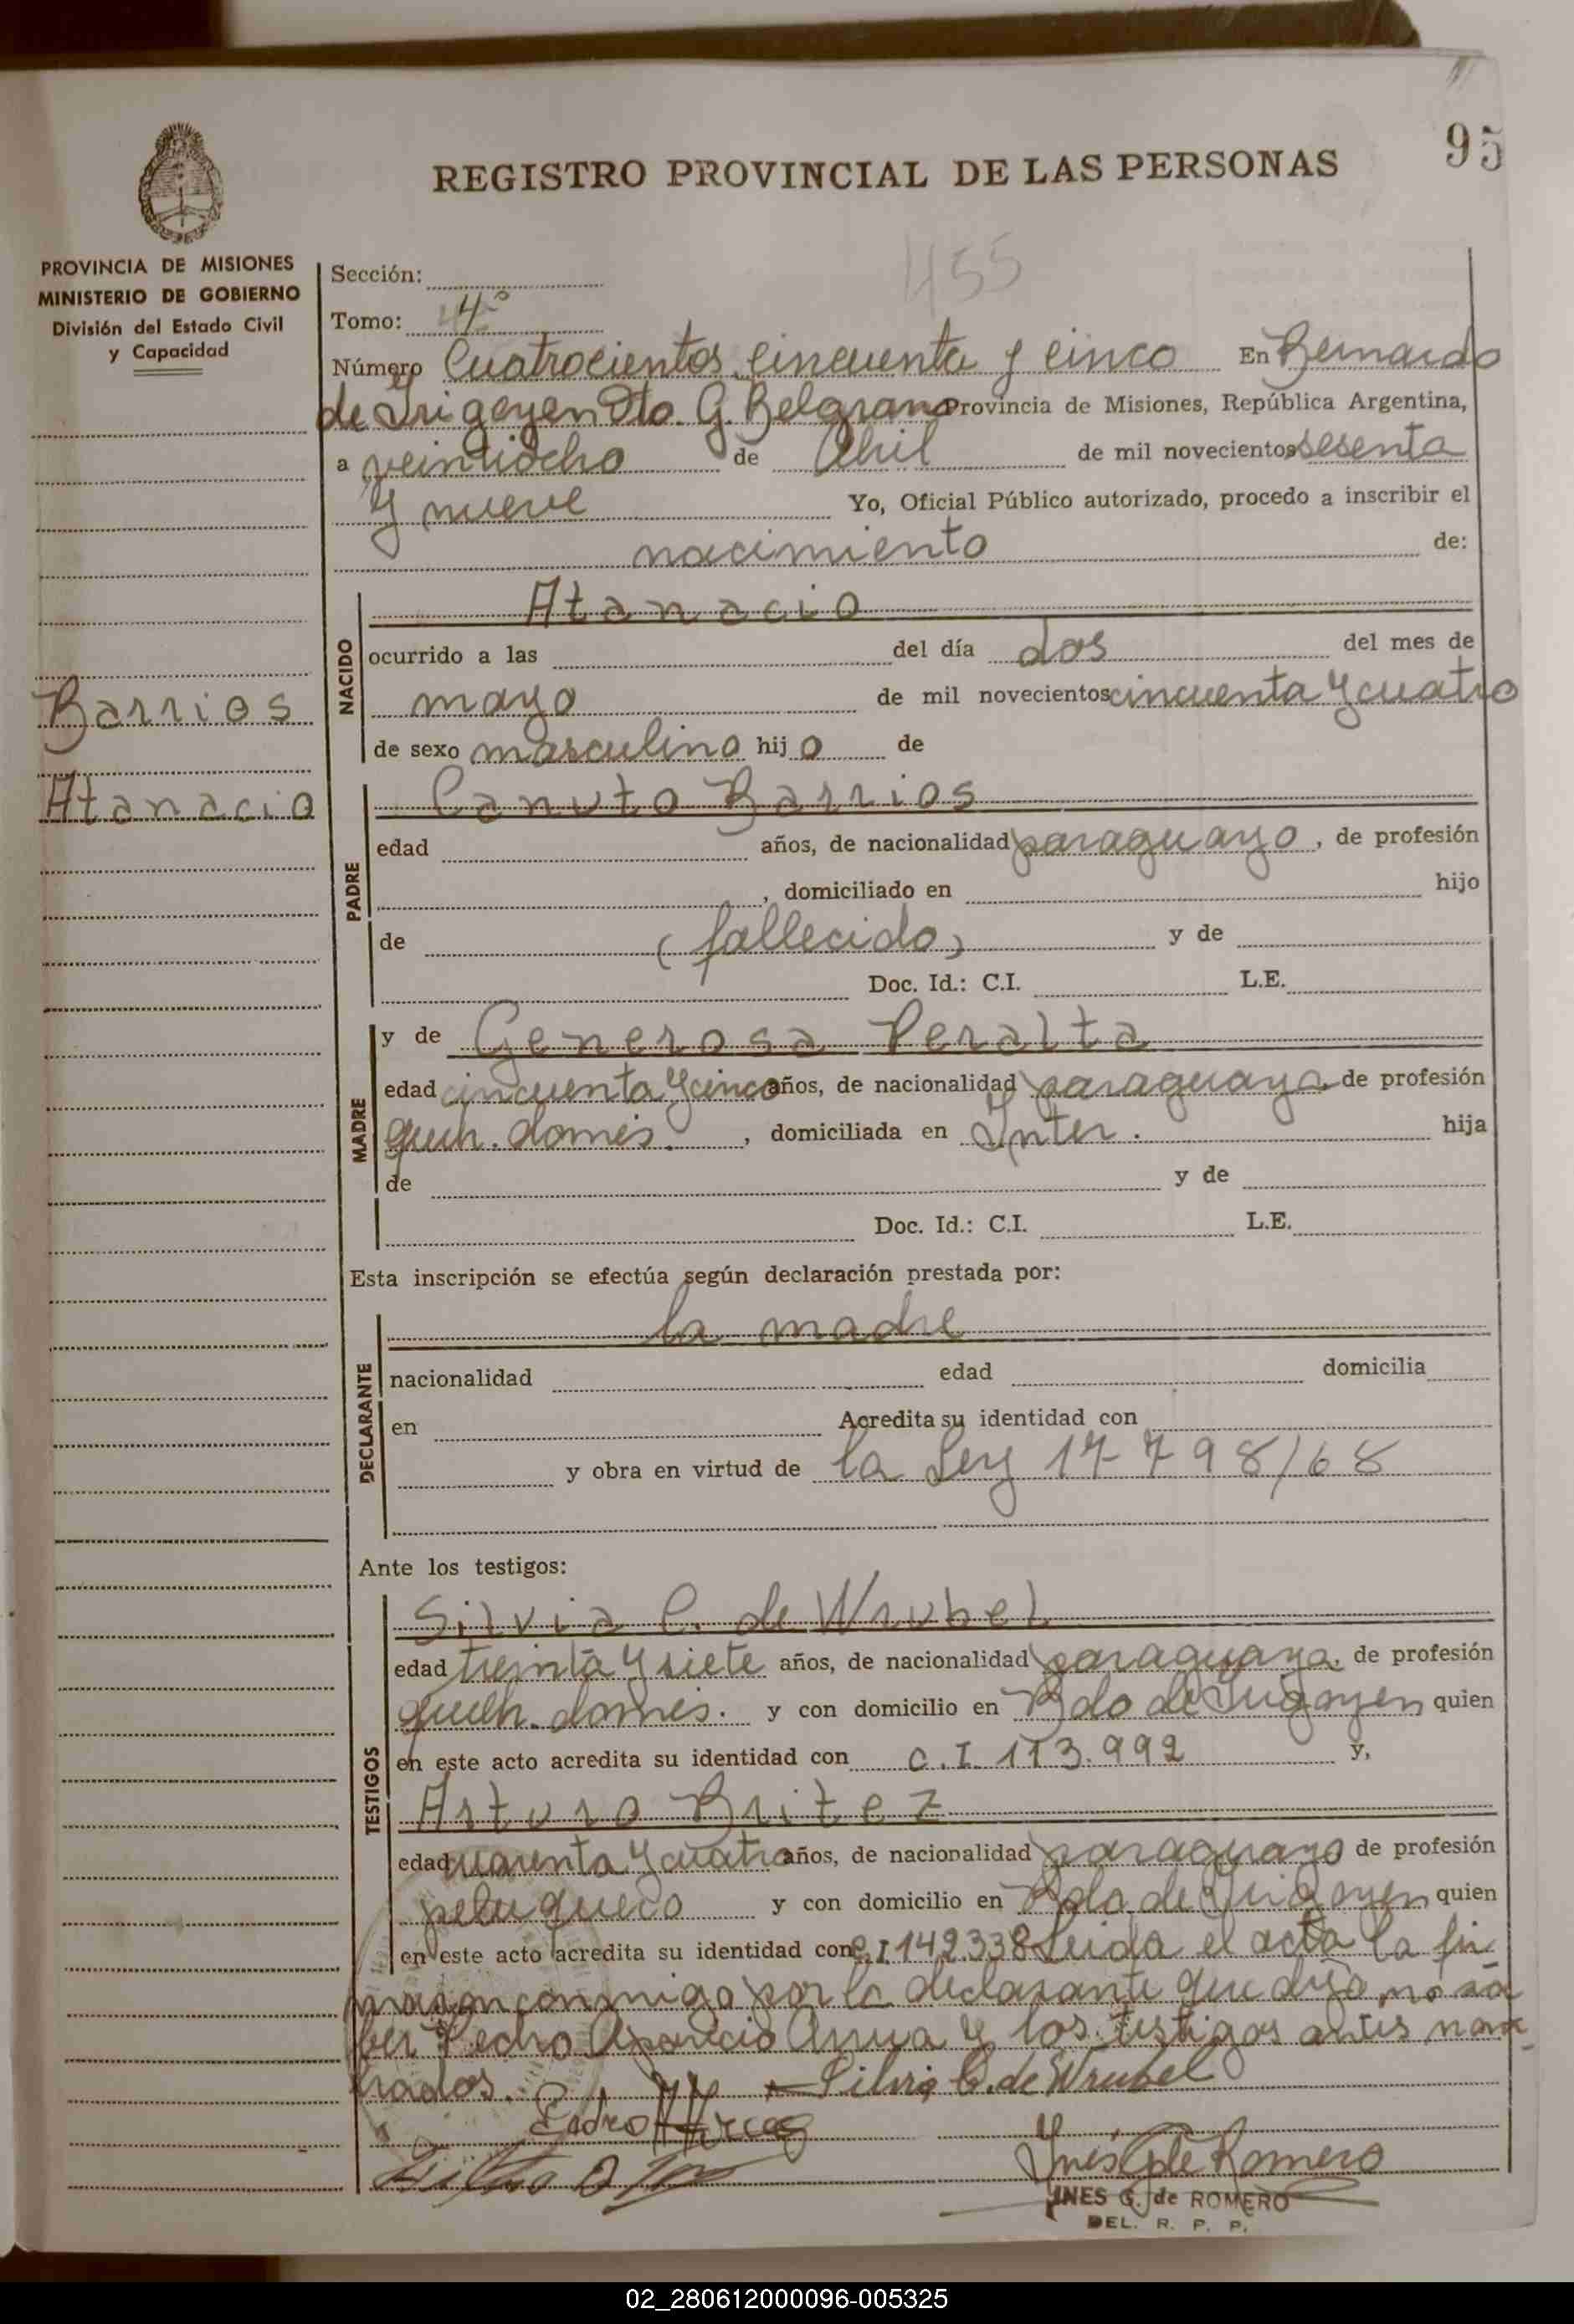 95
REGISTRO PROVINCIAL DE LAS PERSONAS
PROVINCIA DE MISIONES
MINISTERIO DE GOBIERNO
División del Estado Civil
y Capacidad
455
Sección:
Tomo: 4º
Número Cuatrocientos cincuenta y cinco En Bernardo
de Irigoyen Dto. G. Belgrano Provincia de Misiones, República Argentina,
a veintiocho de Abril de mil novecientos sesenta
y nueve Yo, Oficial Público autorizado, procedo a inscribir el
nacimiento de:
Barrios
Atanacio
NACIDO
Atanacio
ocurrido a las del día dos del mes de
mayo de mil novecientos cincuenta y cuatro
de sexo masculino hijo de
PADRE
Canuto Barrios
edad años, de nacionalidad paraguayo, de profesión
, domiciliado en hijo
de (fallecido) y de
Doc. Id.: C.I. L.E.
MADRE
y de Generosa Peralta
edad cincuenta y cinco años, de nacionalidad paraguaya, de profesión
queh. domés. , domiciliada en Inter. hija
de y de
Doc. Id.: C.I. L.E.
Esta inscripción se efectúa según declaración prestada por:
DECLARANTE
la madre
nacionalidad edad domicilia
en Acredita su identidad con
y obra en virtud de la Ley 17798/68
Ante los testigos:
TESTIGOS
Silvia C. de Wrubel
edad treinta y siete años, de nacionalidad paraguaya, de profesión
queh. domés. y con domicilio en Bdo de Irigoyen quien
en este acto acredita su identidad con C.I. 113.992 y,
Arturo Britez
edad cuarenta y cuatro años, de nacionalidad paraguayo de profesión
peluquero y con domicilio en Bdo. de Irigoyen quien
en este acto acredita su identidad con C.I 142338 Leida el acta la fir
maron conmigo por la declarante que dijo no sa
ber Pedro Aparicio y los testigos antes nom
brados. Silvia C. de Wrubel
Pedro
Inés G de Romero
INES G. de ROMERO
DEL. R. P. P.
02_280612000096-005325